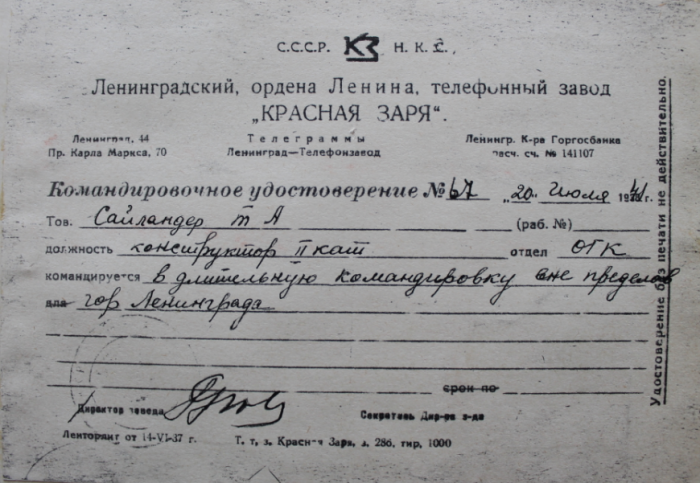 С.С.С.Р. КЗ Н. К. С.
Ленинградский, ордена Ленина, телефонный завод
„КРАСНАЯ ЗАРЯ“.
Ленинград, 44 Телеграммы Ленингр. К-ра Горгосбанка
Пр. Карла Маркса, 70 Ленинград—Телефонзавод расч. сч. № 141107
Командировочное удостоверение № 67 „20“ Июля 1941 г.
Тов. Сайландер Т А (раб. №)
должность конструктор II кат отдел ОТК
командируется в длительную командировку вне пределов
для гор Ленинграда
срок по
Директор завода Секретарь Дир-ра з-да
Ленгорлит от 14-VI-37 г. Т. т. з. Красная Заря, з. 286, тир. 1000
Удостоверение без печати не действительно.